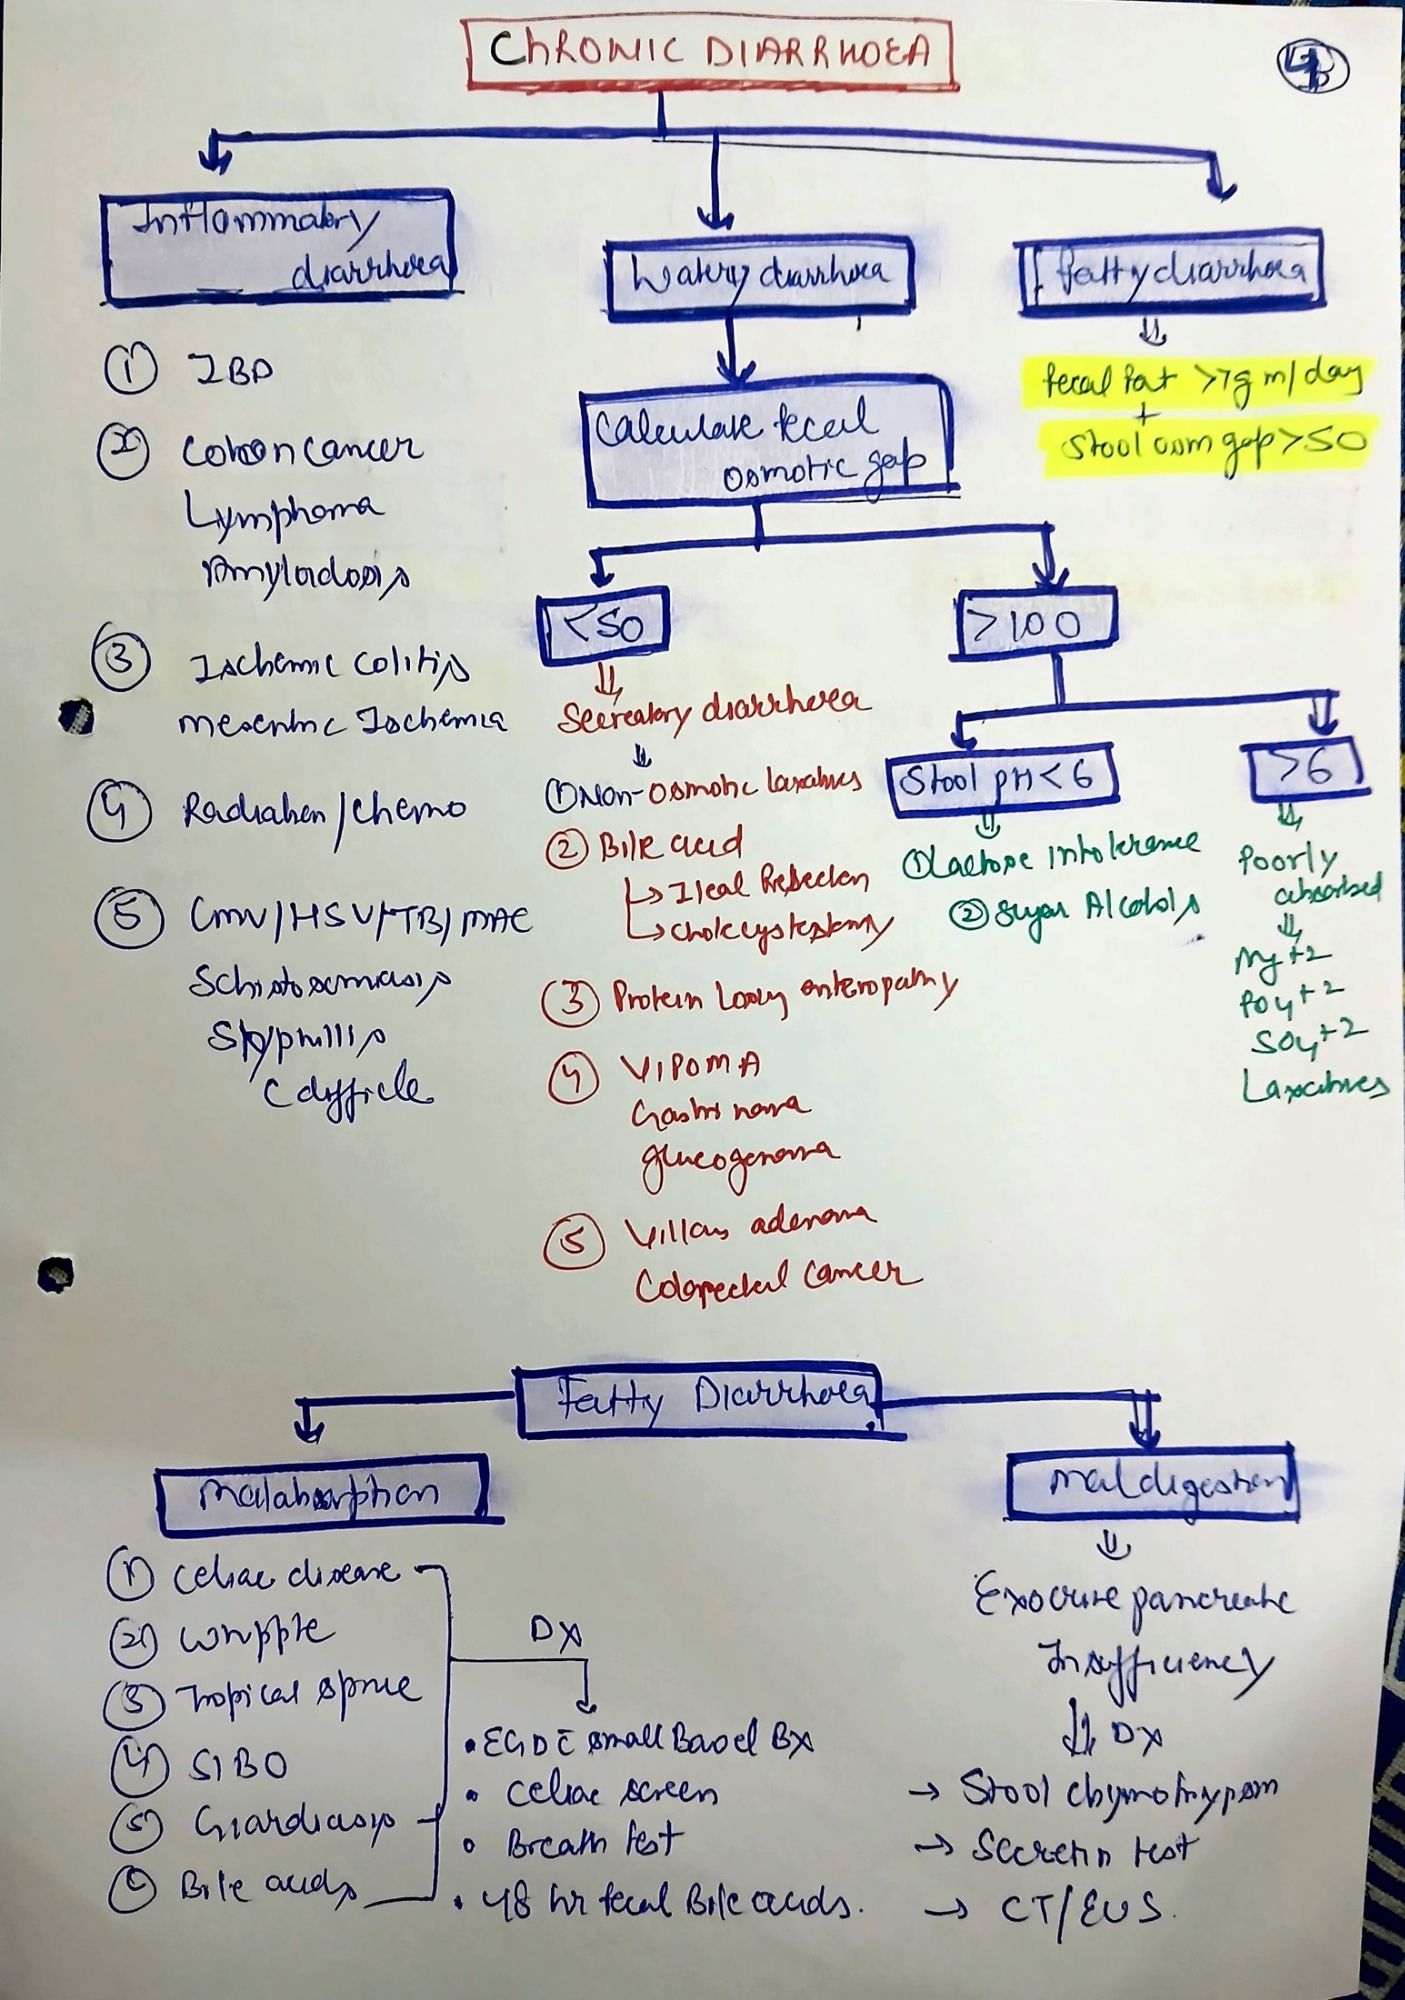 CHRONIC DIARRHOEA
Inflammatory
diarrhoea
Watery diarrhoea
fatty diarrhoea
① IBD
② Colon cancer
Lymphoma
Amyloidosis
③ Ischemic Colitis
mesentric Ischemia
④ Radiation/chemo
⑤ CMV/HSV/TB/MAC
Schistosomiasis
Syphillis
C difficle
Calculate fecal
osmotic gap
<50
Secreatory diarrhoea
① Non-osmotic laxatives
② Bile acid
↳ Ileal Resection
↳ cholecystectomy
③ Protein losing enteropathy
④ VIPOMA
Gastrinoma
glucogonoma
⑤ Villous adenoma
Colorectal Cancer
>100
Stool pH <6
① Lactose intolerance
② Sugar Alcohols
>6
Poorly
absorbed
Mg+2
PO4+2
SO4+2
Laxatives
fecal fat >7gm/day
+
Stool osm gap >50
Fatty Diarrhoea
Malabsorption
① Celiac disease
② Whipple
③ Tropical sprue
④ SIBO
⑤ Giardiasis
⑥ Bile acids
Dx
• EGD c̄ small Bowel Bx
• Celiac screen
• Breath test
• 48 hr fecal Bile acids.
Maldigestion
Exocrine pancreatic
Insufficiency
Dx
→ Stool chymotrypsin
→ Secretin test
→ CT/EUS.